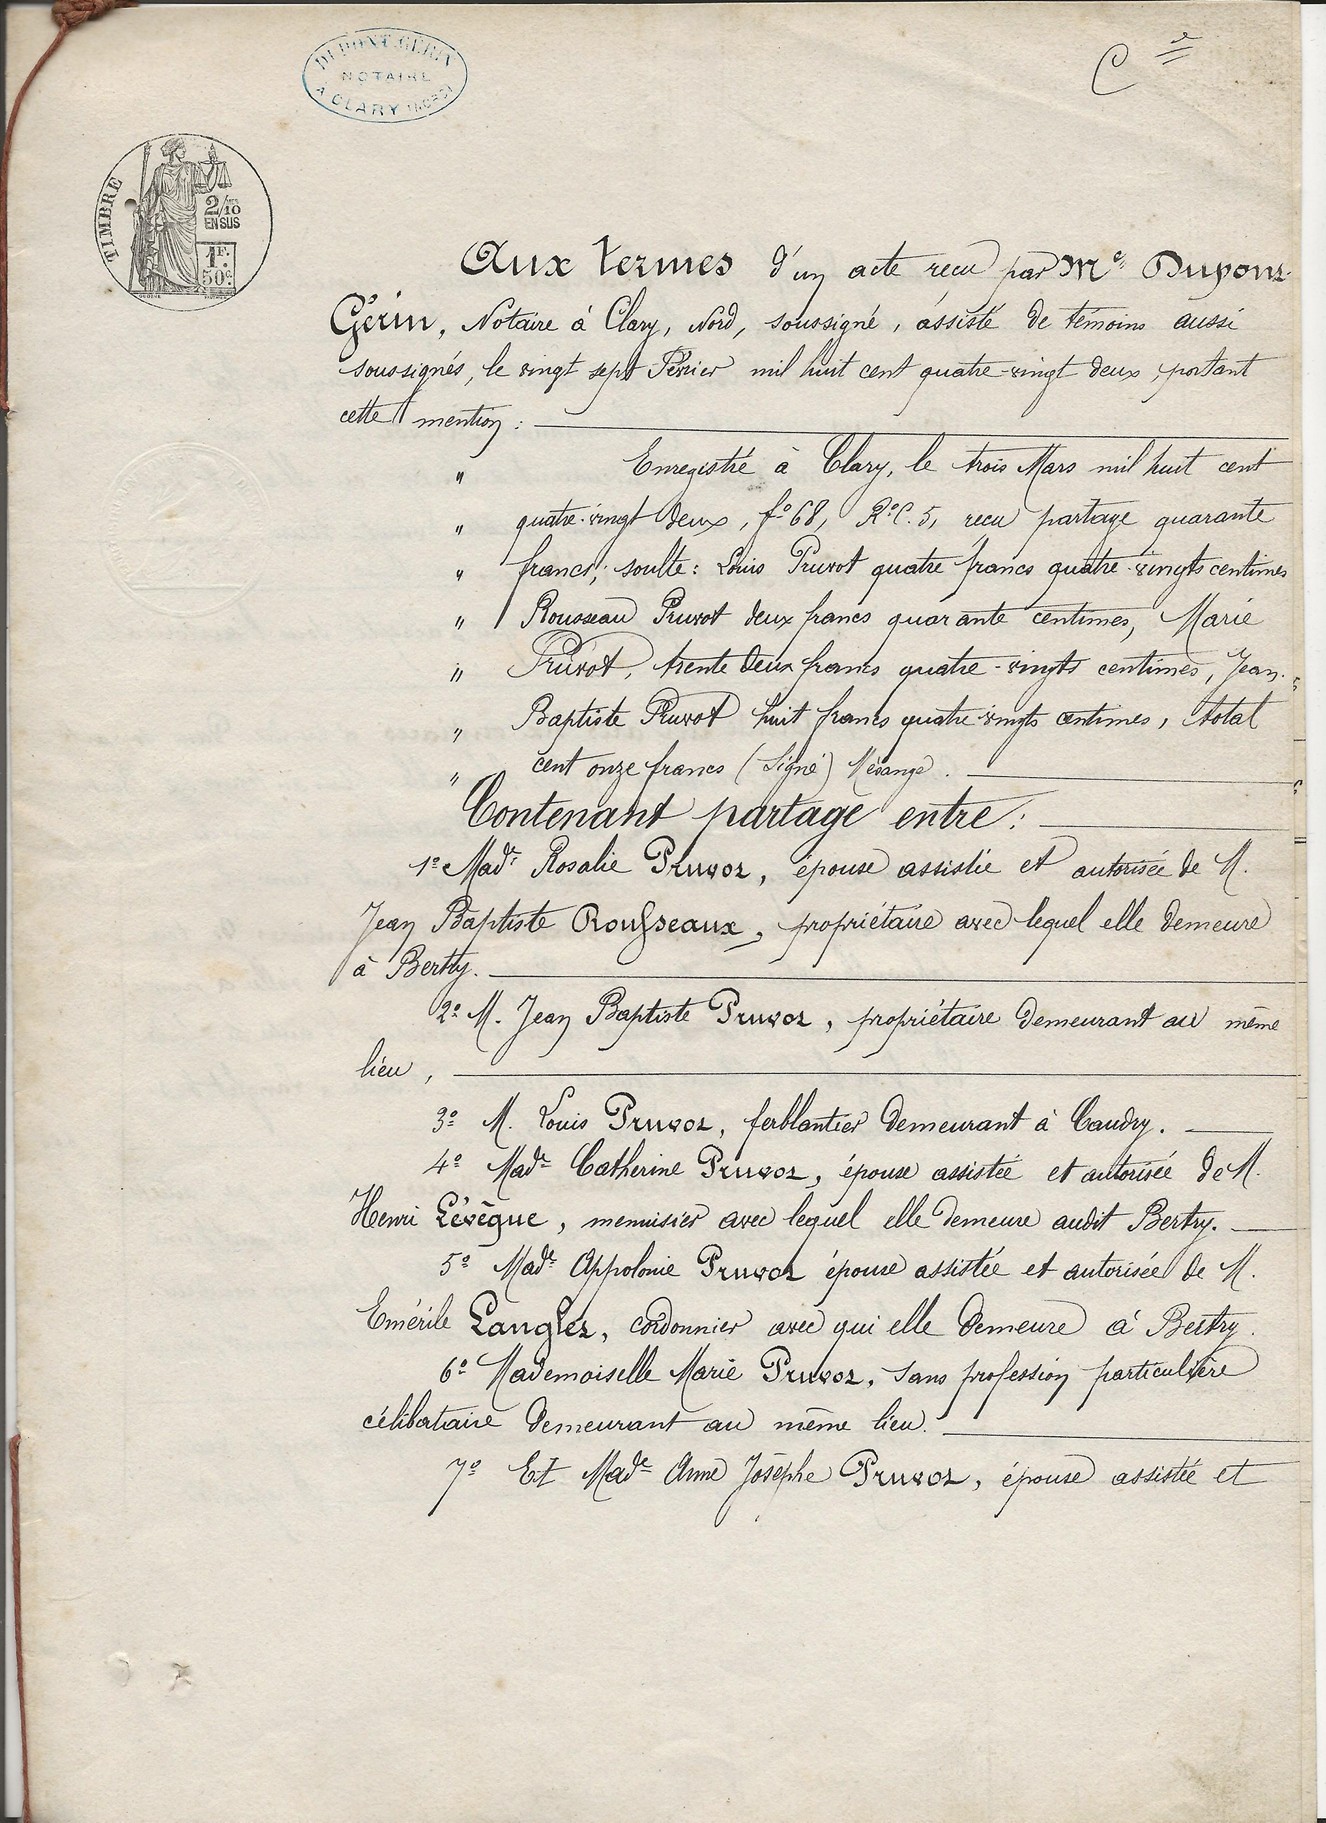 DUPONT-GÉRIN
NOTAIRE
A CLARY (NORD)
C el
TIMBRE
2/10
EN SUS
1F.
50c.
Aux termes d'un acte reçu par Me Dupont-
Gérin, Notaire à Clary, Nord, soussigné, assisté de témoins aussi
soussignés, le vingt sept Février mil huit cent quatre-vingt deux, portant
cette mention :
" Enregistré à Clary, le trois Mars mil huit cent
" quatre-vingt deux, fo 68, Ro C. 5, reçu partage quarante
" francs; soulte : Louis Pruvot quatre francs quatre-vingts centimes
" Rousseau Pruvot deux francs quarante centimes, Marie
" Pruvot, trente deux francs quatre-vingts centimes, Jean-
" Baptiste Pruvot huit francs quatre vingts centimes, total
" cent onze francs (Signé) Mésange.
Contenant partage entre :
1o Made Rosalie Pruvot, épouse assistée et autorisée de M.
Jean Baptiste Rousseaux, propriétaire avec lequel elle demeure
à Bertry.
2o M. Jean Baptiste Pruvot, propriétaire demeurant au même
lieu,
3o M. Louis Pruvot, ferblantier demeurant à Caudry.
4o Made Catherine Pruvot, épouse assistée et autorisée de M.
Henri Lévêque, menuisier avec lequel elle demeure audit Bertry.
5o Made Appolonie Pruvot épouse assistée et autorisée de M.
Emérile Langlez, cordonnier avec qui elle demeure à Bertry.
6o Mademoiselle Marie Pruvot, sans profession particulière
célibataire demeurant au même lieu.
7o Et Made Anne Josèphe Pruvot, épouse assistée et